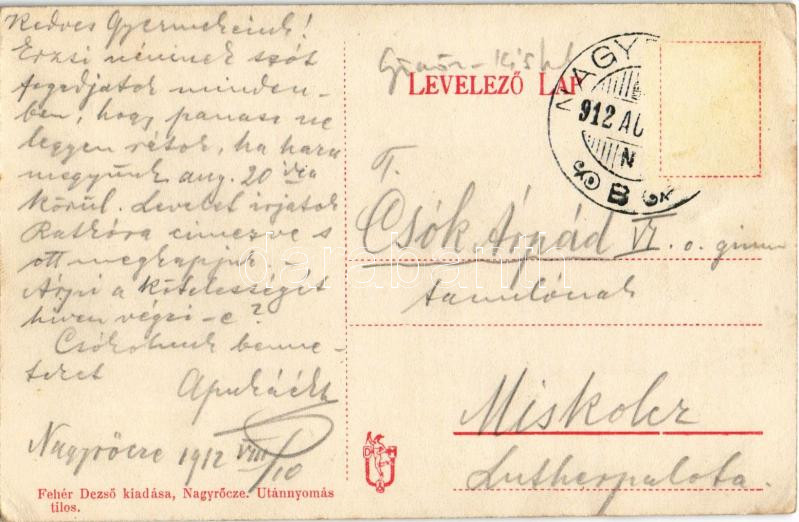 Kedves Gyermekeink!
Erzsi néninek szót
fogadjatok minden-
ben, hogy panasz ne
legyen rátok, ha haza
megyünk aug. 20 ika
körül. Levelet irjatok
Ratkóra cimezve s
ott megkapjuk. -
Árpi a kötelességét
hiven végzi-e?
Csókolunk benne-
teket
Apukáék
Nagyrőcze 1912 VIII/10
Fehér Dezső kiadása, Nagyrőcze. Utánnyomás
tilos.
Gömör-Kish
LEVELEZŐ LAP
NAGY
912 AU
N
B
T.
Csók Árpád VI. o. gimn
tanulónak
Miskolcz
Lutherpalota.
D M
darabanth